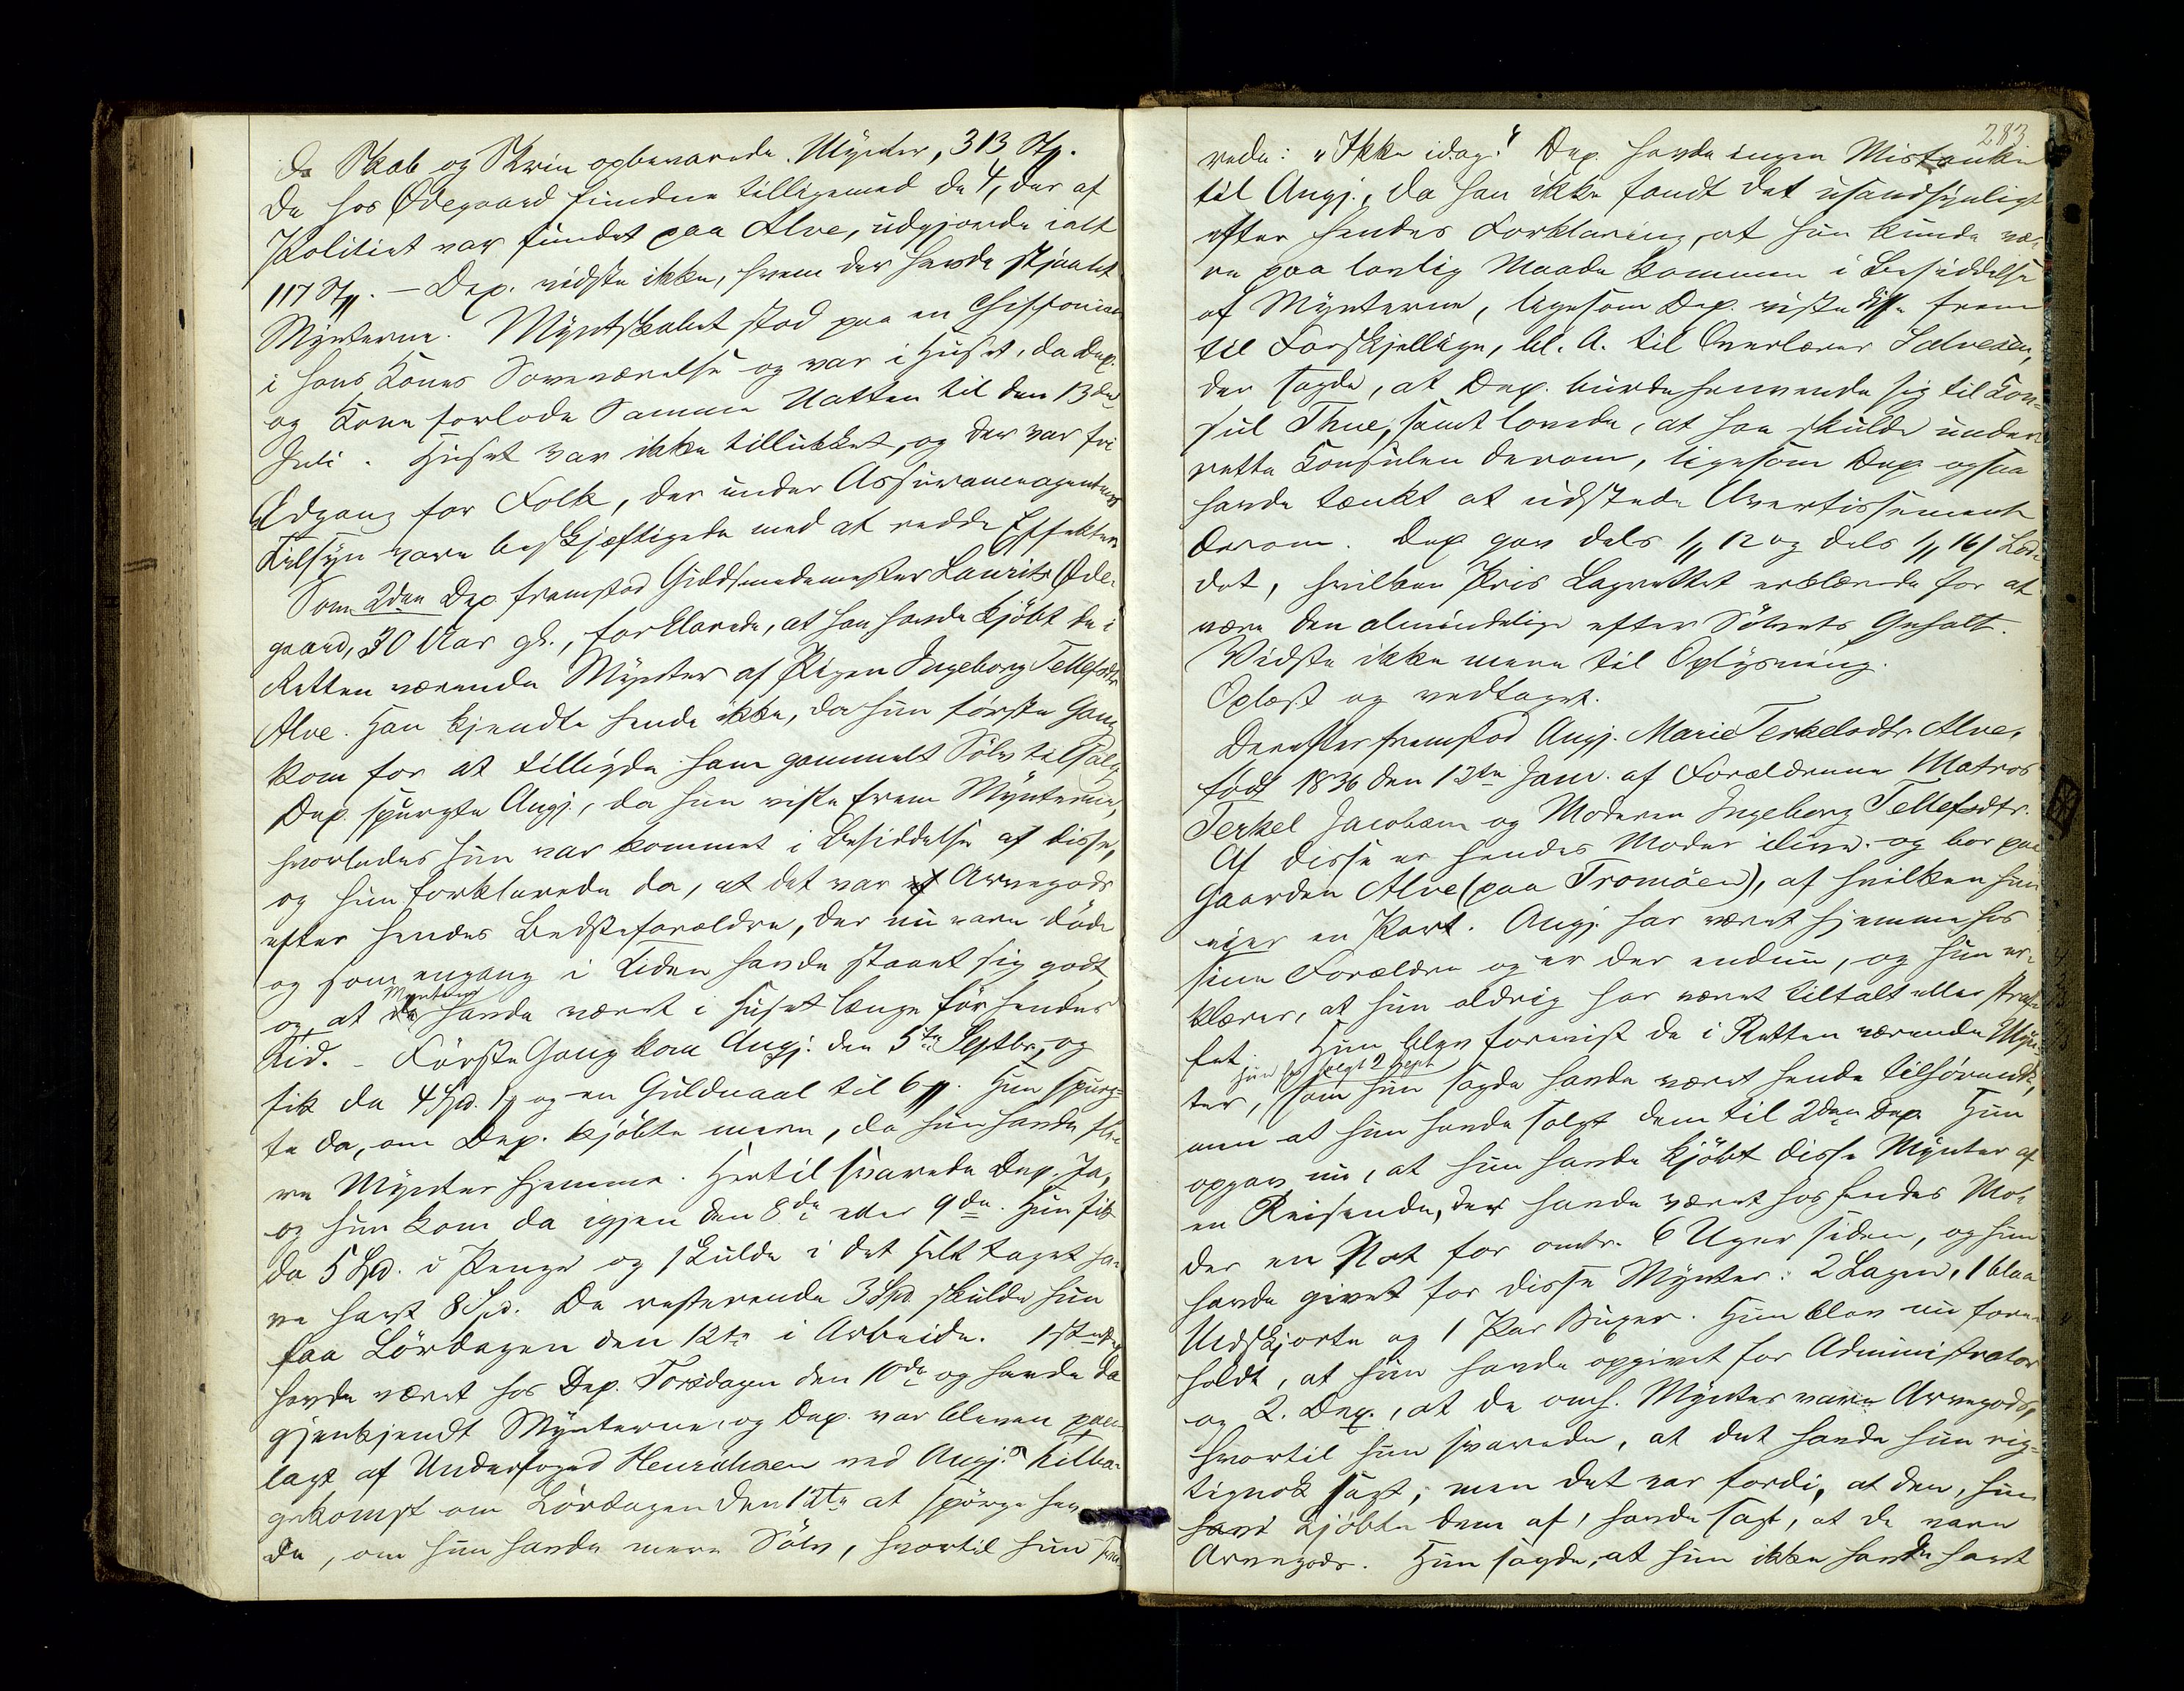 de Skab og Skrin opbevarede Mynter, 313 St.
De hos Ødegaard fundne tilligemed de 4, der af
Politiet var fundet paa Alve, udgjorde ialt
117 St. – Dep. vidste ikke, hvem der havde stjaalet
Mynterne. Myntskabet stod paa en Chiffoniere
i hans Kones Soveværelse og var i Huset, da Dep.
og Kone forlode Samme Natten til den 13de
Juli. Huset var ikke tillukket, og der var fri
Adgang for Folk, der under Assuranceagentens
Tilsyn vare beskjæftigede med at redde Effekter.
Som 2den Dep fremstod Guldsmedemester Laurits Øde-
gaard, 30 Aar gl., forklarede, at han havde kjöbt de i
Retten værende Mynter af Pigen Ingeborg Tellefsdtr
Alve. Han kjendte hende ikke, da hun förste Gang
kom for at tilbyde ham gammelt Sölv tilsalg
Dep. spurgte Angj., da hun viste frem Mynterne,
hvorledes hun var kommet i Besiddelse af disse,
og hun forklarede da, at det var Arvegods
efter hendes Bedsteforældre, der nu vare döde
og som engang i Tiden havde staaet sig godt,
og at Mynterne havde været i Huset længe för hendes
Tid. – Förste Gang kom Angj. den 5te Septbr, og
fik da 4 Spd. 1 og en Guldnaal til 6. Hun spurg-
te da, om Dep. kjöbte mere, da hun havde fle-
re Mynter hjemme. Hertil svarede Dep. Ja,
og hun kom da igjen den 8de eller 9de. Hun fik
da 5 Spd. i Penge og skulde i det Hele taget ha-
ve havt 8 Spd. De resterende 3 Spd. skulde hun
faa Lördagen den 12te i Arbeide. 1ste Dep
havde været hos Dep. Torsdagen den 10de og havde da
gjenkjendt Mynterne, og Dep. var bleven paa-
lagt af Underfoged Henrichsen ved Angj.s Tilba-
gekomst om Lördagen den 12te at spörge hen-
de, om hun havde mere Sölv, hvortil hun sva-
283
rede: "Ikke idag." Dep. havde ingen Mistanke
til Angj., da han ikke fandt det usandsynligt
efter hendes Forklaring, at hun kunde væ-
re paa lovlig Maade kommen i Besiddelse
af Mynterne, ligesom Dep. viste disse frem
til Forskjellige, bl. A. til Overlærer Salvesen,
der sagde, at Dep. burde henvende sig til Kon-
sul Thue, samt lovede, at han skulde under-
rette Konsulen derom, ligesom Dep ogsaa
havde tænkt at udstede Avertissement
derom. Dep gav dels 12 og dels 16 Lod-
det, hvilken Pris Lagrettet erklærede for at
være den almindelige efter Sölvets Gehalt.
Vidste ikke mere til Oplysning.
Oplæst og vedtaget.
Derefter fremstod Angj. Marie Terkelsdtr Alve,
födt 1836 den 12te Janr. af Forældrene Matros
Terkel Jacobsen og Moderen Ingeborg Tellefsdtr.
Af disse er hendes Moder ilive og bor paa
Gaarden Alve (paa Tromöen), af hvilken hun
eier en Part. Angj. har været hjemme hos
sine Forældre og er der endnu, og hun er-
klærer, at hun aldrig har været tiltalt eller straf-
fet. Hun blev forevist de i Retten værende Myn-
ter, som hun sagde havde været hende tilhörende,
men at hun havde solgt dem til 2den Dep Hun
opgav nu, at hun havde kjöbt disse Mynter af
en Reisende, der havde været hos hendes Mo-
der en Nat for omtr. 6 Uger siden, og hun
havde givet for disse Mynter: 2 Lagen, 1 blaa
Uldskjorte og 1 Par Buxer. Hun blev nu fore-
holdt, at hun havde opgivet for Administrator
og 2. Dep., at de omh. Mynter vare Arvegods,
hvortil hun svarede, at det havde hun rig-
tignok sagt, men det var fordi, at den, hun
kjöbte dem af, havde sagt, at de vare
Arvegods. Hun sagde, at hun ikke havde havt